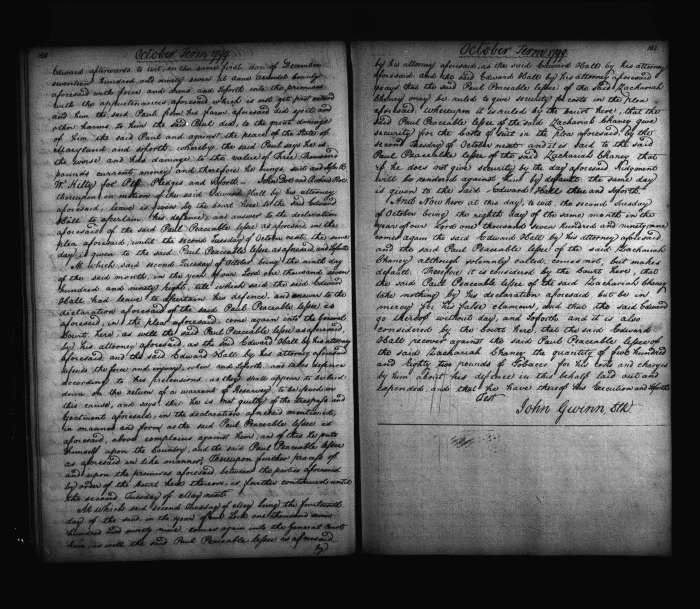 October Term 1799.
Edward afterwards to wit, on the same first day of December
seventeen hundred and ninety seven at Anne Arundel County
aforesaid with force and arms and soforth into the premises
with the appurtenances aforesaid which is not yet past entered
and him the said Paul from his farm aforesaid did eject and
other harms to him the said Paul did, to the great damage
of him the said Paul and against the peace of the State of
Maryland and soforth, whereby the said Paul says he is
the worse, and has damage to the value of Three Thousand
pounds current money and therefore he brings suit and
W. Kilty for Plff. Pledges and soforth John Doe and Richard Roe.
Whereupon on motion of the said Edward Hall by his attorney
aforesaid, leave is given by the court here to the said Edward
Hall to ascertain his defence, and answer to the declaration
aforesaid of the said Paul Peaceable lessee as aforesaid in the
plea aforesaid, until the second Tuesday of October next, the same
day is given to the said Paul Peaceable lessee as aforesaid and soforth
At which said second Tuesday of October being the ninth day
of the said month, in the year of our Lord one thousand seven
hundred and ninety eight, till which said the said Edward
Hall had leave to ascertain his defence and answer to the
declaration aforesaid of the said Paul Peaceable lessee as
aforesaid, in the plea aforesaid come again into the General
Court here, as well the said Paul Peaceable lessee as aforesaid
by his attorney aforesaid, as the said Edward Hall by his attorney
aforesaid and the said Edward Hall by his attorney aforesaid
defends the force and injury, when and soforth, and takes defence
according to his pretensions as they shall appear to be laid
down on the return of a warrant of Resurvey to be issued in
this cause, and says that he is not guilty of the trespass and
ejectment aforesaid, in the declaration aforesaid mentioned,
in manner and form as the said Paul Peaceable lessee as
aforesaid, above complains against him, and of this he puts
himself upon the Country, and the said Paul Peaceable lessee
as aforesaid in like manner; Thereupon further process of
and upon the premises aforesaid between the parties aforesaid
by order of the Court here thereon is further continued until
the second Tuesday of May next.
At which said second Tuesday of May being the fourteenth
day of the said in the year of our Lord one thousand seven
hundred and ninety nine, comes again into the General Court
here, as well the said Paul Peaceable lessee as aforesaid
by
October Term 1799.
by his attorney aforesaid, as the said Edward Hall by his attorney
aforesaid; and the said Edward Hall by his attorney aforesaid
prays that the said Paul Peaceable lessee of the said Zachariah
Chaney may be ruled to give security for costs in the plea
aforesaid, whereupon it is ruled by the court here, that the
said Paul Peaceable lessee of the said Zachariah Chaney give
security for the costs of suit in the plea aforesaid by the
second Tuesday of October next and it is said to the said
Paul Peaceable lessee of the said Zachariah Chaney that
if he does not give security by the day aforesaid Judgment
will be rendered against him by default. the same day
is given to the said Edward Hall there and soforth.
And Now here at this day, to wit, the second Tuesday
of October being the eighth day of the same month in the
year of our Lord one thousand seven hundred and ninety nine
comes again the said Edward Hall by his attorney aforesaid
and the said Paul Peaceable lessee of the said Zachariah
Chaney although solemnly called, comes not, but makes
default. Therefore it is considered by the Court here, that
the said Paul Peaceable lessee of the said Zachariah Chaney
take nothing by his declaration aforesaid but be in
mercy for his false clamour, and that the said Edward
go thereof without day, and soforth and it is also
considered by the Court here, that the said Edward
Hall recover against the said Paul Peaceable lessee of
the said Zachariah Chaney the quantity of five hundred
and Eighty two pounds of Tobacco for his costs and charges
by him about his defence in this behalf laid out and
expended, and that he have thereof his Execution and soforth
Test
John Gwinn, Clk